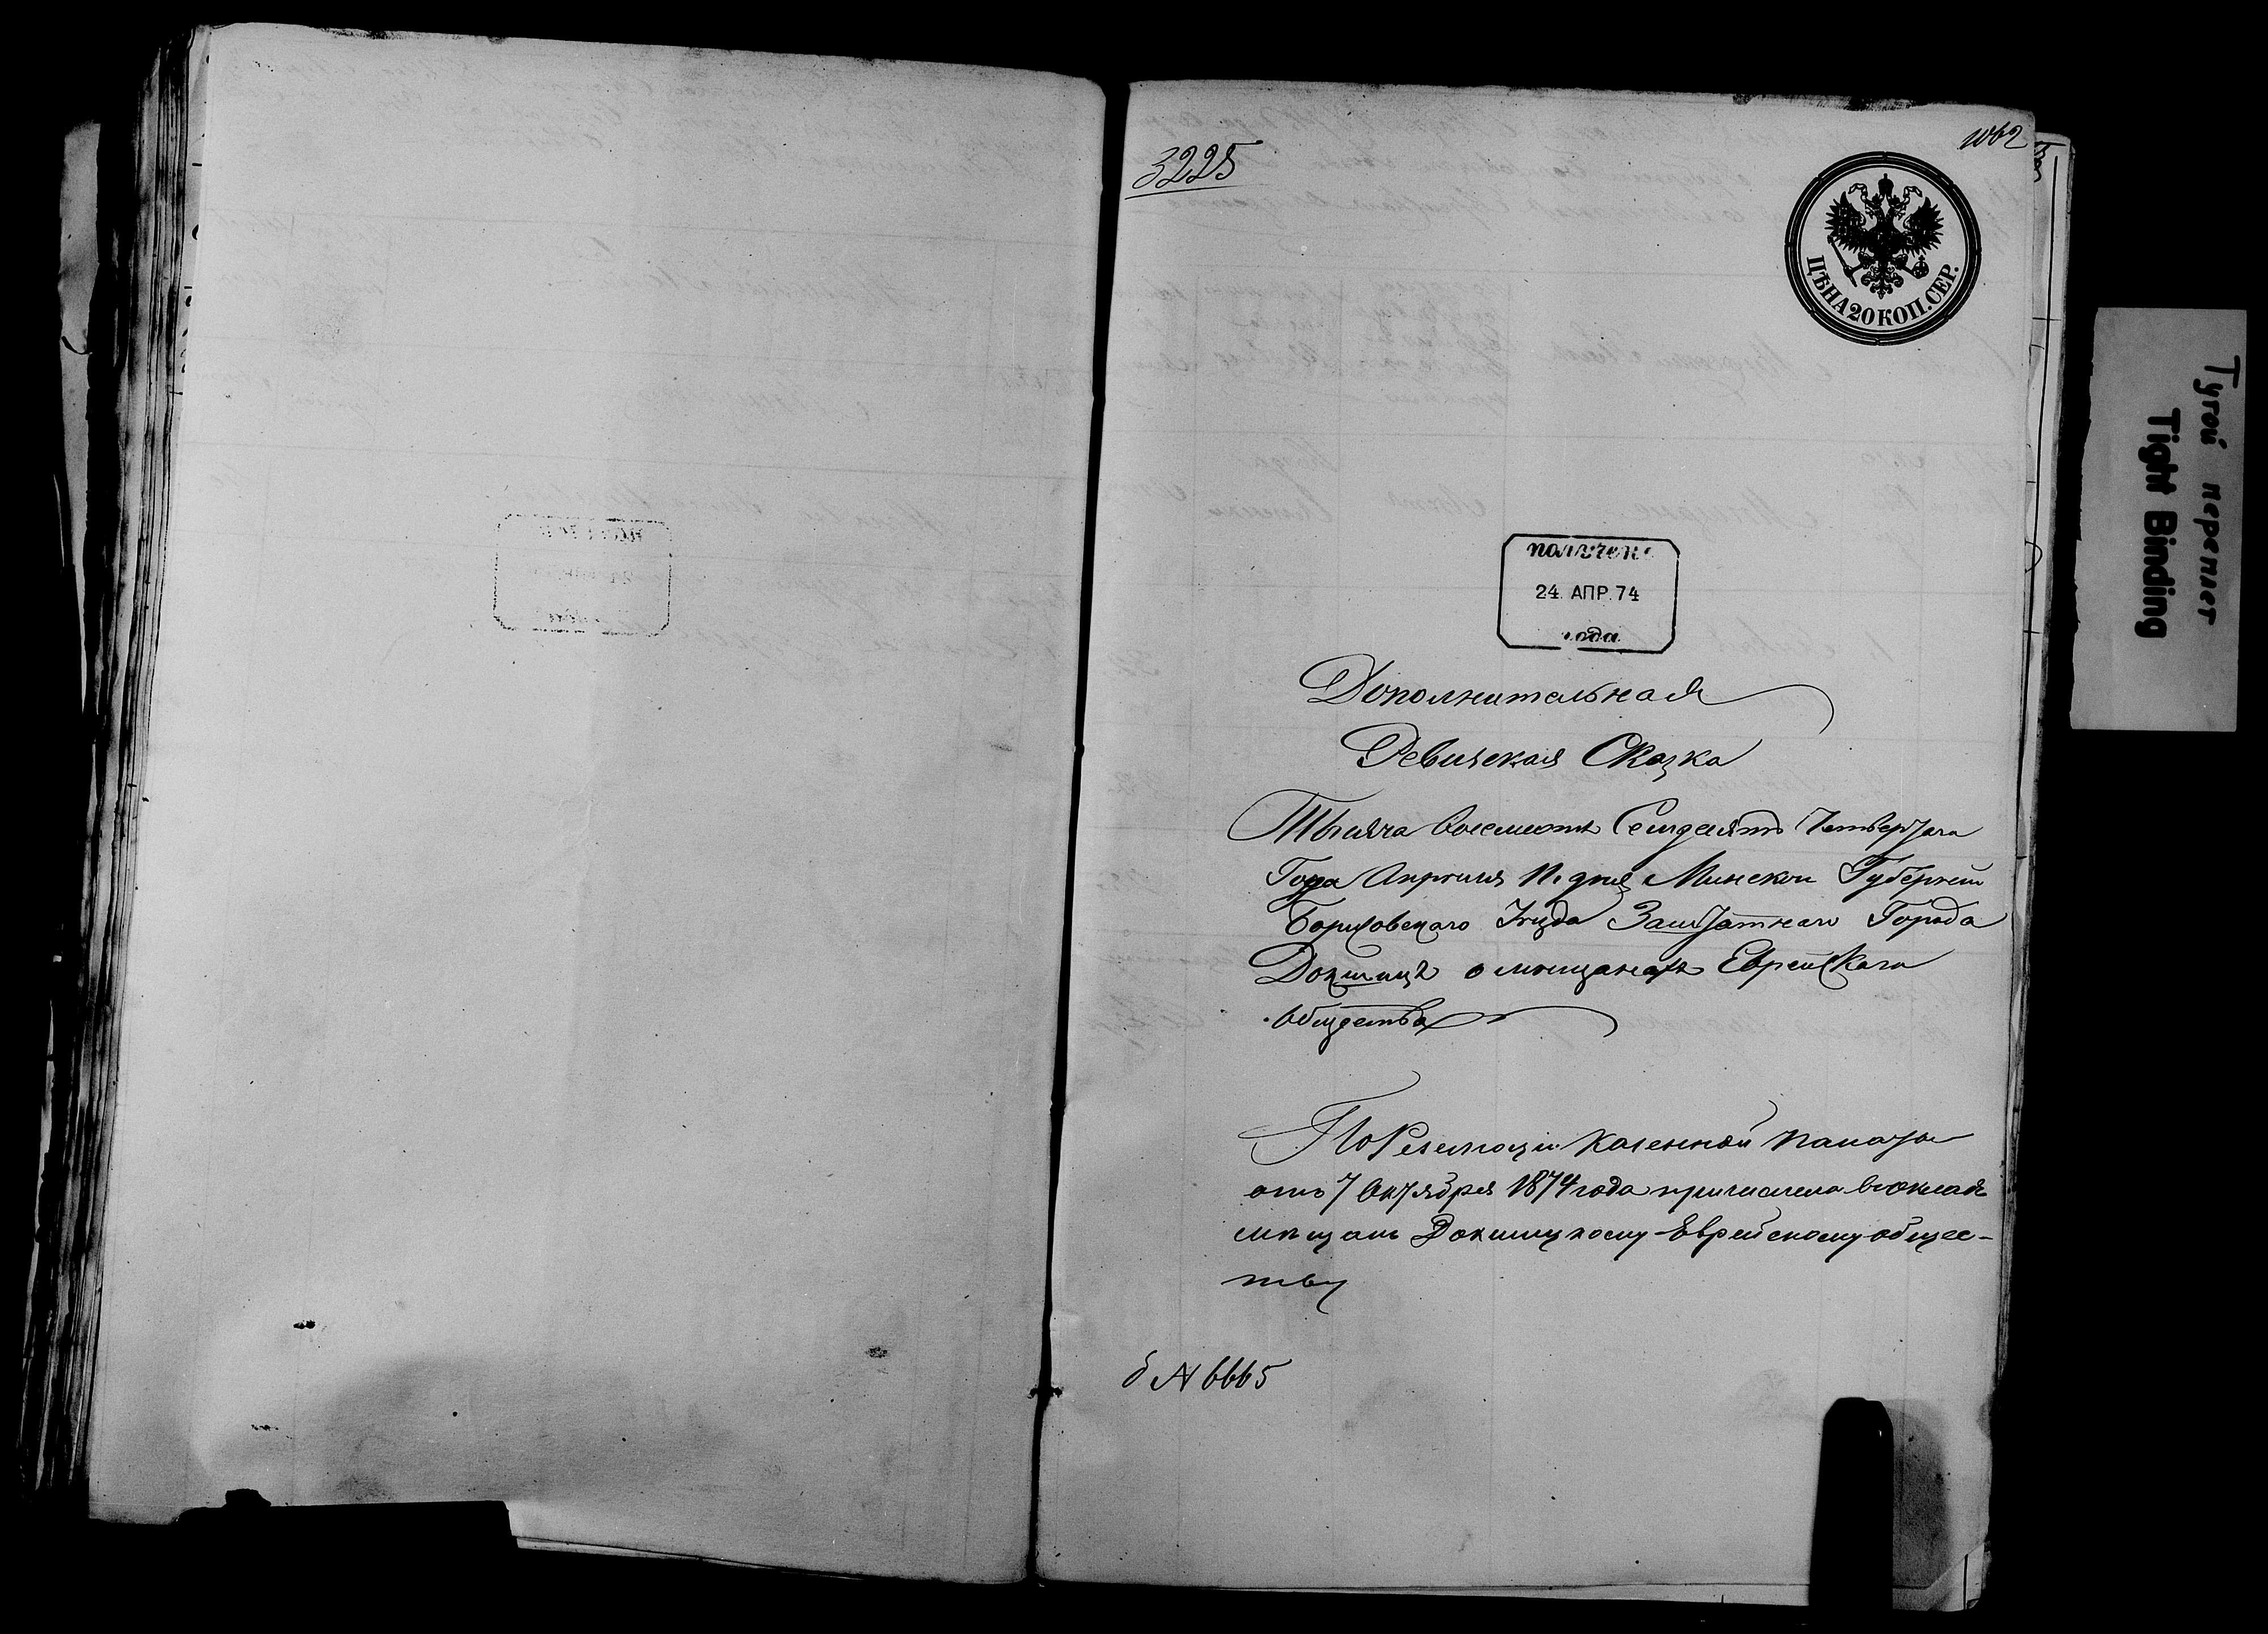 3225
1062
ЦѢНА 20 КОП. СЕР.
получено
24 АПР. 74
года
Дополнительная
Ревизская Сказка
Тысяча восемсотъ Семдесятъ Четвертаго
Года Апреля 11 дня Минской Губерніи
Борисовскаго Уезда Заштатнаго Города
Докшицъ о мещанахъ Еврейскаго
общества
По Резолюціи Казенной Палаты
отъ 7 Октября 1874 года причислена въ окладъ
мещанъ Докшицкому Еврейскому общес-
тву
№ 6665
Тугой переплет
Tight Binding